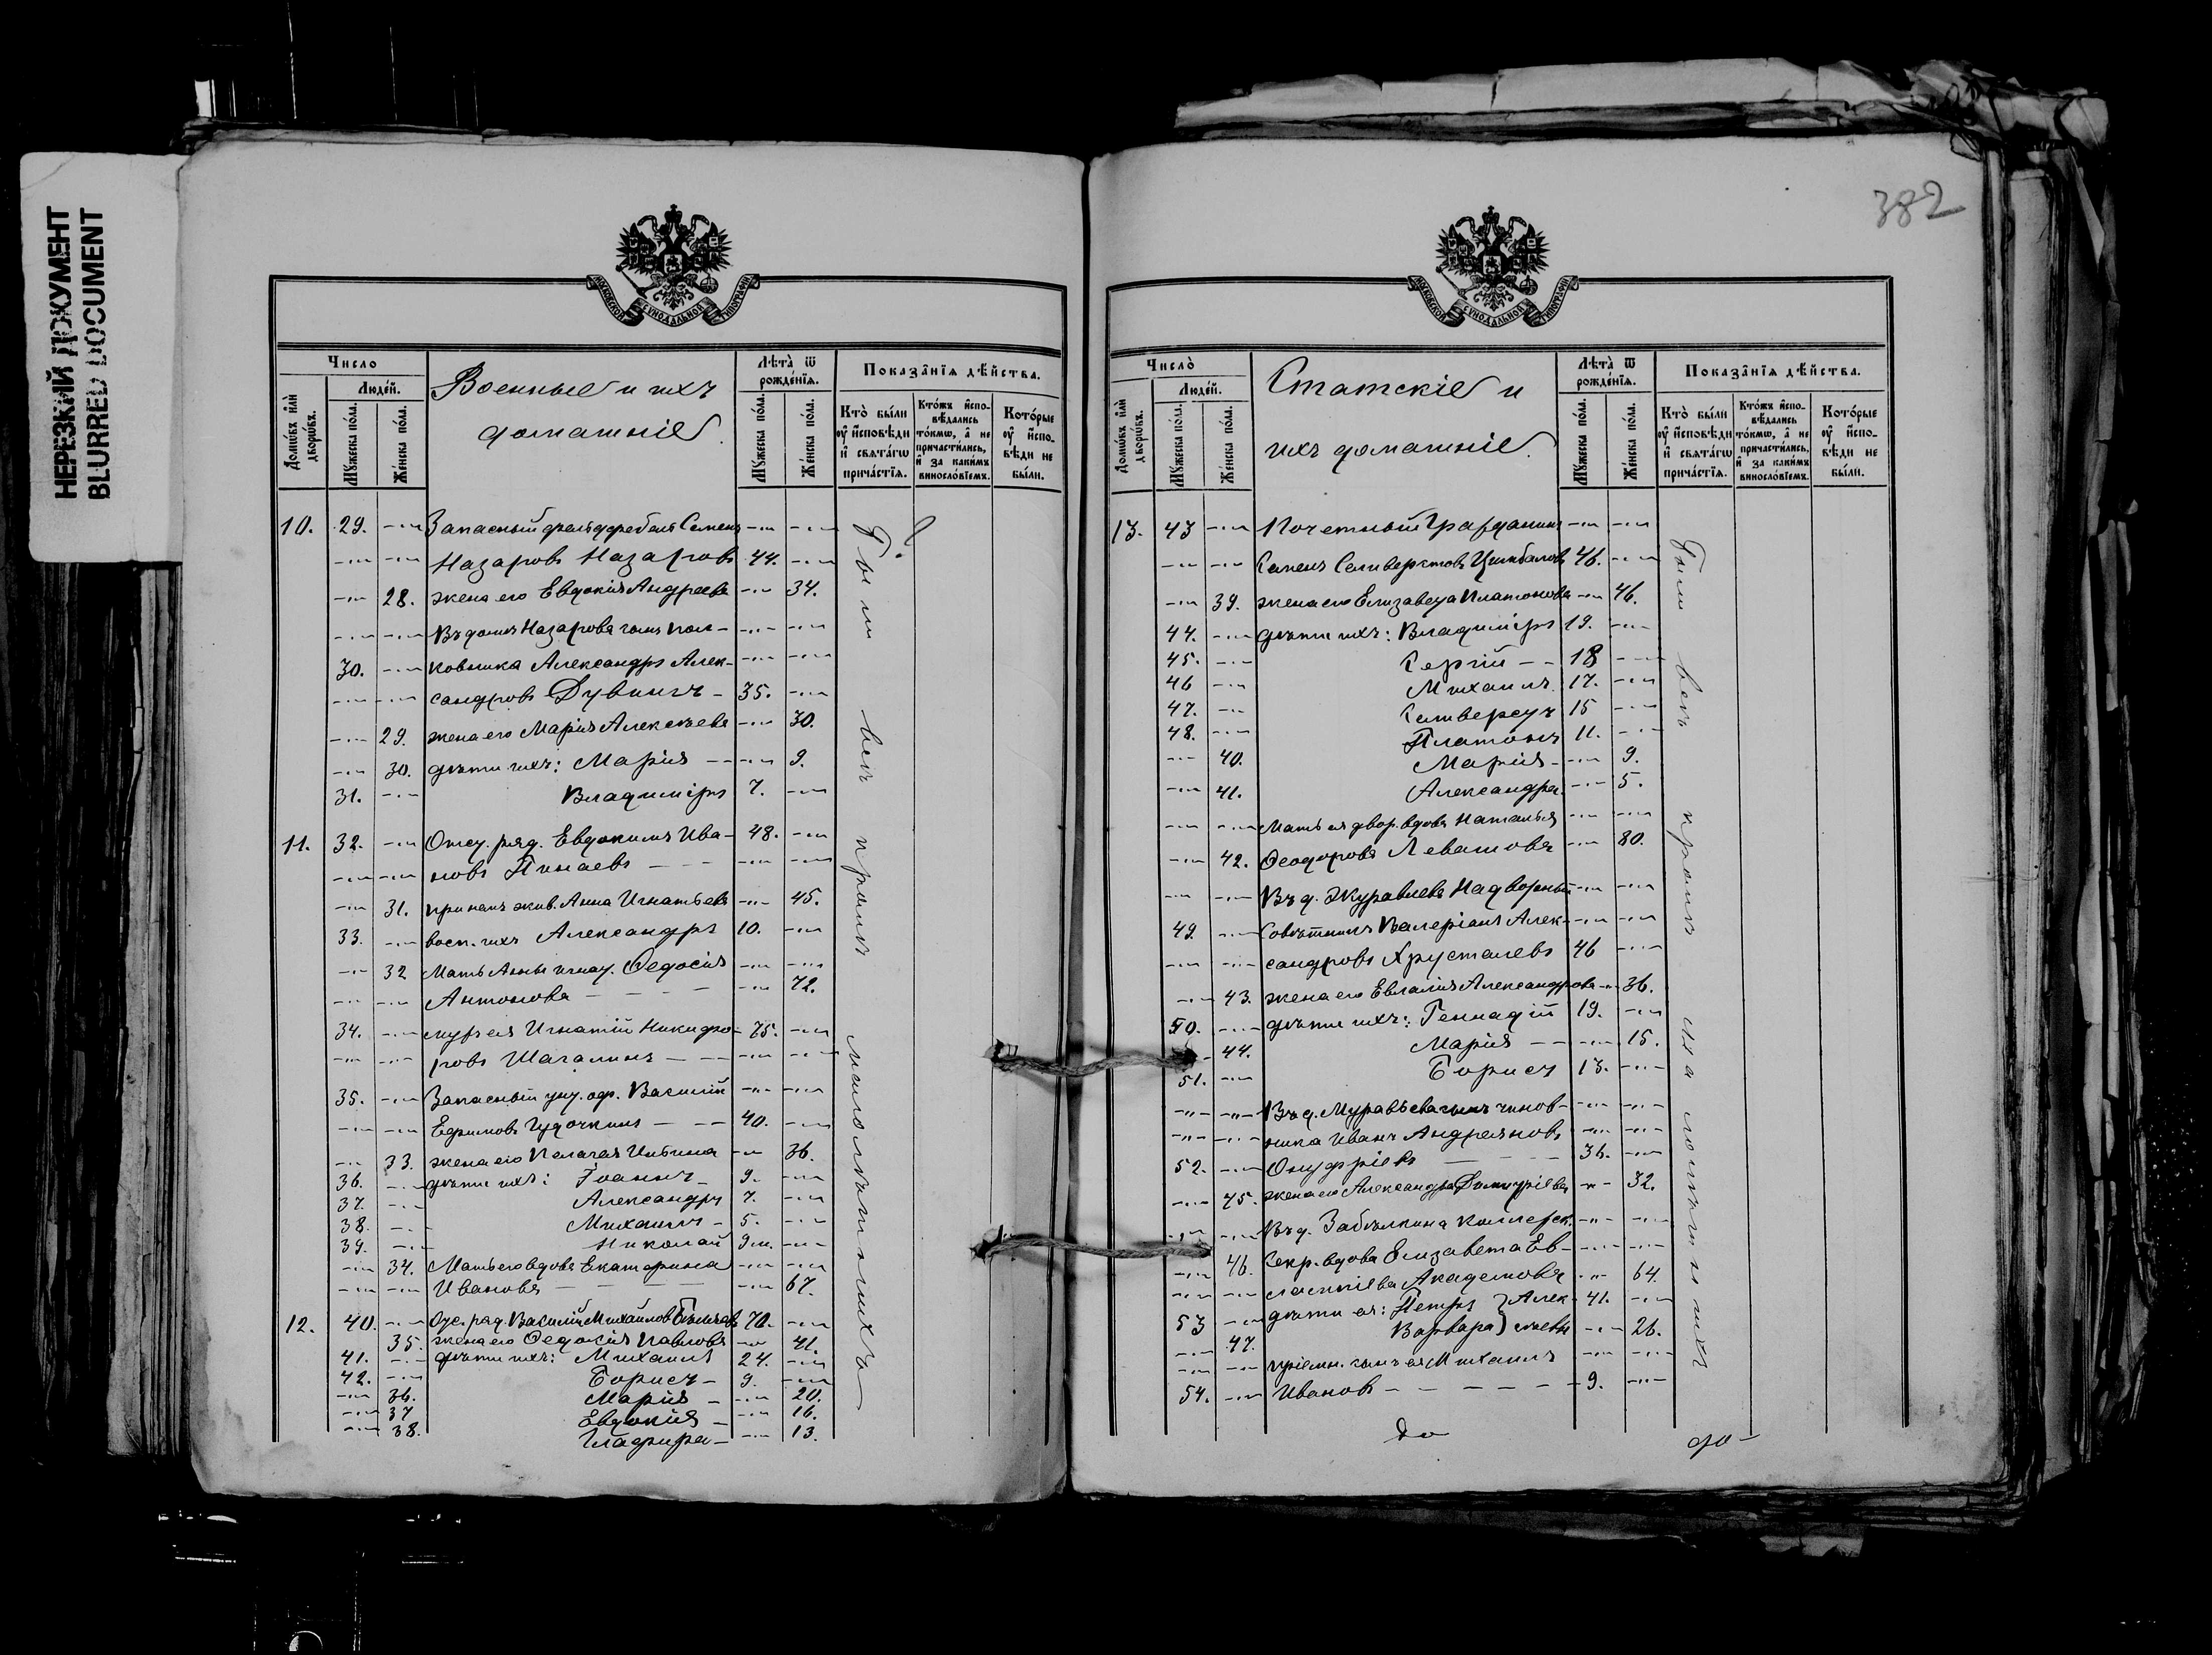 НЕРЕЗКИЙ ДОКУМЕНТ
BLURRED DOCUMENT
МОСКОВСКОЙ СѴНОДАЛЬНОЙ ТИПОГРАФІИ
Число
Людей.
Домѡвъ или дворѡвъ.
Мꙋжеска пола.
Женска пола.
Военные и ихъ
домашніе.
Лѣта ѿ рожденія.
Мꙋжеска пола.
Женска пола.
Показанія дѣйства.
Кто были ꙋ исповѣди и свѧтагѡ причастїѧ.
Ктожъ исповѣдались токмѡ, а не причастились, и за какимъ винословїемъ.
Которые ꙋ исповѣди не были.
10. 29. -"- Запасный фельдфебель Семенъ -"- -"-
-"- -"- Назаровъ Назаровъ 44. -"-
-"- 28. жена его Евдокія Андреева -"- 34.
-"- -"- Въ домѣ Назарова сынъ пол- -"- -"-
30. -"- ковника Александръ Алек- -"- -"-
-"- -"- сандровъ 35. -"-
-"- 29. жена его Марія Алексѣева -"- 30.
-"- 30. дѣти ихъ: Марія -"- 9.
31. -"- Владиміръ 7. -"-
11. 32. -"- Отст. ряд. Евдокимъ Ива- 48. -"-
-"- -"- новъ Пинаевъ -"- -"-
-"- 31. при немъ жив. Анна Игнатьева -"- 45.
33. -"- восп. ихъ Александръ 10. -"-
-"- 32 Мать Анны Ѳедосія -"- -"-
-"- -"- Антонова -"- 72.
34. -"- мужъ ея Игнатій Никифо- 75. -"-
-"- -"- ровъ Шагалинъ -"- -"-
35. -"- Запасный унт. оф. Василій -"- -"-
-"- -"- Ефимовъ Гудочкинъ 40. -"-
-"- 33. жена его Пелагея Ильина -"- 36.
36. -"- дѣти ихъ: Іоаннъ 9. -"-
37. -"- Александръ 7. -"-
38. -"- Михаилъ 5. -"-
39. -"- Николай 9 м. -"-
-"- 34. Мать его вдова Екатерина -"- -"-
-"- -"- Иванова -"- 67.
12. 40. -"- Отс. ряд. Василій Михайловъ 70. -"-
35. жена его Ѳедосія Павлова -"- 41.
41. -"- дѣти ихъ: Михаилъ 24. -"-
42. -"- Борисъ 9. -"-
-"- 36. Марія -"- 20.
-"- 37 Евдокія -"- 16.
-"- 38. Глафира -"- 13.
Были всѣ кромѣ малолѣтнихъ
382
МОСКОВСКОЙ СѴНОДАЛЬНОЙ ТИПОГРАФІИ
Число
Людей.
Домѡвъ или дворѡвъ.
Мꙋжеска пола.
Женска пола.
Статскіе и
ихъ домашніе.
Лѣта ѿ рожденія.
Мꙋжеска пола.
Женска пола.
Показанія дѣйства.
Кто были ꙋ исповѣди и свѧтагѡ причастїѧ.
Ктожъ исповѣдались токмѡ, а не причастились, и за какимъ винословїемъ.
Которые ꙋ исповѣди не были.
13. 43 -"- Почетный Гражданинъ -"- -"-
-"- -"- Семенъ Селиверстовъ Цимбаловъ 46. -"-
-"- 39. жена его Елизавета Платонова -"- 46.
44. -"- дѣти ихъ: Владиміръ 19. -"-
45. -"- Сергій 18 -"-
46 -"- Михаилъ 17. -"-
47. -"- Селиверстъ 15 -"-
48. -"- Платонъ 11. -"-
-"- 40. Марія -"- 9.
-"- 41. Александра -"- 5.
-"- -"- Мать ея двор. вдова Наталья -"- -"-
-"- 42. Ѳеодорова Левашова -"- 80.
-"- -"- Въ д. Журавлева Надворный -"- -"-
49. -"- Совѣтникъ Валеріанъ Алек- -"- -"-
-"- -"- сандровъ Хрусталевъ 46 -"-
-"- 43. жена его Евлалія Александрова -"- 36.
50. -"- дѣти ихъ: Геннадій 19. -"-
44. Марія -"- 15.
51. -"- Борисъ 13. -"-
-"- -"- Въ д. Муравьева сынъ чинов- -"- -"-
-"- -"- ника Иванъ Андреяновъ -"- -"-
52. -"- Онуфріевъ 36. -"-
-"- 45. жена его Александра Димитріева -"- 32.
-"- -"- Въ д. Забѣлкина Коллежск. -"- -"-
-"- 46. Секр. вдова Елизавета Ев- -"- -"-
-"- -"- Академова -"- 64.
53 -"- дѣти ея: Петръ } Алек- 41. -"-
-"- 47. Варвара } сѣевы -"- 26.
-"- -"- пріемн. сынъ ея Михаилъ -"- -"-
54. -"- Ивановъ 9. -"-
Были всѣ кромѣ
до
до